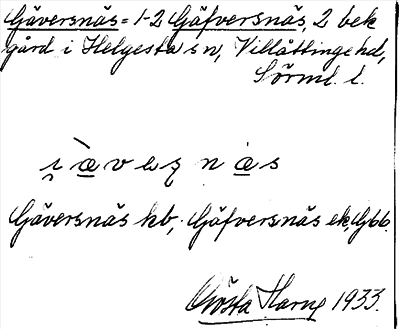 Gäversnäs = 1-2 Gäfversnäs, 2 bek
gård i Helgesta sn, Villåttinge hd,
Sörml. l.
Gäversnäs kb, Gäfversnäs ek, Gbb.
Gösta Harng 1933.